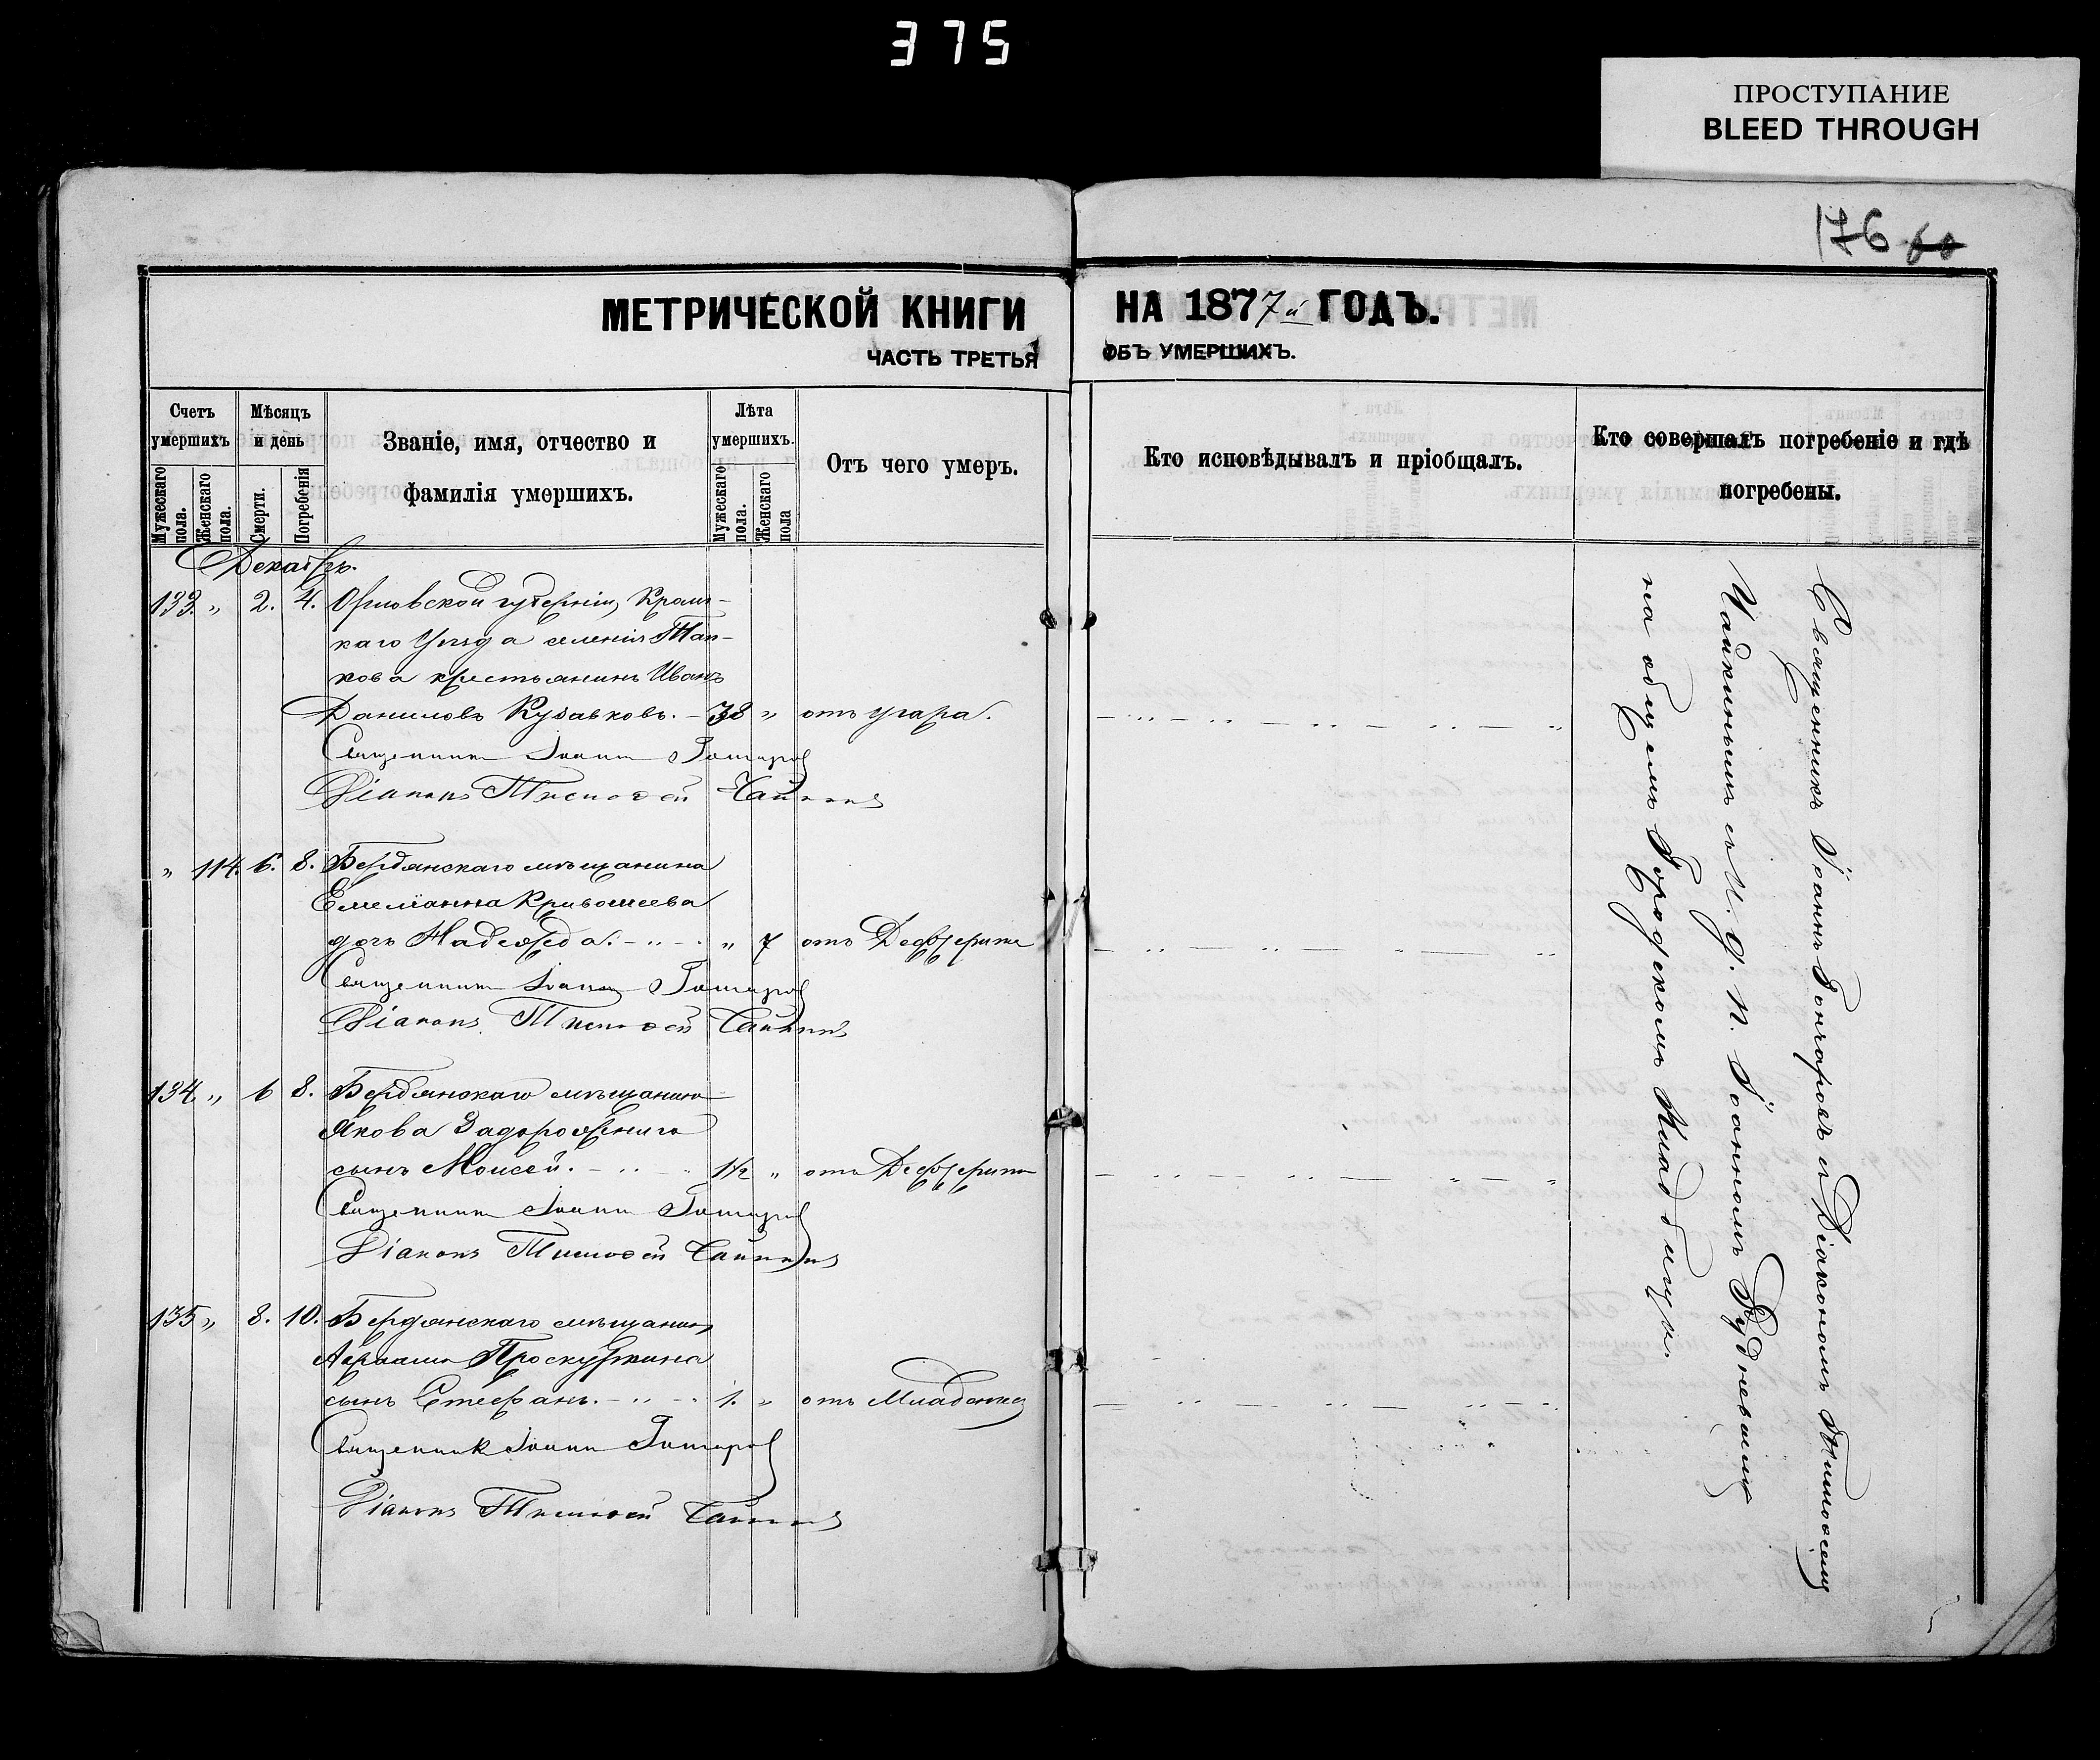 375
ПРОСТУПАНИЕ
BLEED THROUGH
176 60
МЕТРИЧЕСКОЙ КНИГИ НА 1877й ГОДЪ.
ЧАСТЬ ТРЕТЬЯ ОБЪ УМЕРШИХЪ.
Счетъ умершихъ
Мужескаго пола.
Женскаго пола.
Мѣсяцъ и день
Смерти.
Погребенія
Званіе, имя, отчество и
фамилія умершихъ.
Лѣта умершихъ.
Мужескаго пола.
Женскаго пола
Отъ чего умеръ.
Кто исповѣдывалъ и пріобщалъ.
Кто совершалъ погребеніе и гдѣ
погребены.
Декабрь.
133. " 2. 4. Орловской губерніи, Кром-
каго Уѣзда селенія Тап-
кова крестьянинъ Иванъ
Даниловъ Кубавковъ. - 38 " отъ угара.
Священникъ Іоаннъ Гончаровъ
Діаконъ Тимофей Чайкинъ
" 114. 6. 8. Бердянскаго мѣщанина
Емеліанна Кривошеева
дочь Надежда. - " - " 7 отъ Дефтерита
Священникъ Іоаннъ Гончаровъ
Діаконъ Тимофей Чайкинъ
134. " 6 8. Бердянскаго мѣщанина
Якова Задорожнего
сынъ Моисей. - " 1½ " отъ Дефтерита
Священникъ Іоаннъ Гончаровъ
Діаконъ Тимофей Чайкинъ
135 " 8. 10. Бердянскаго мѣщанина
Авраама Проскурнина
сынъ Стефанъ. - " - 1. " отъ Младенче
Священникъ Іоаннъ Гончаровъ
Діаконъ Тимофей Чайкинъ
Священникъ Іоаннъ Гончаровъ и Діакономъ Тимофеемъ
Чайкинымъ съ И. д. п. Іоанномъ Рудневымъ
на общемъ Городскомъ Кладбищѣ.